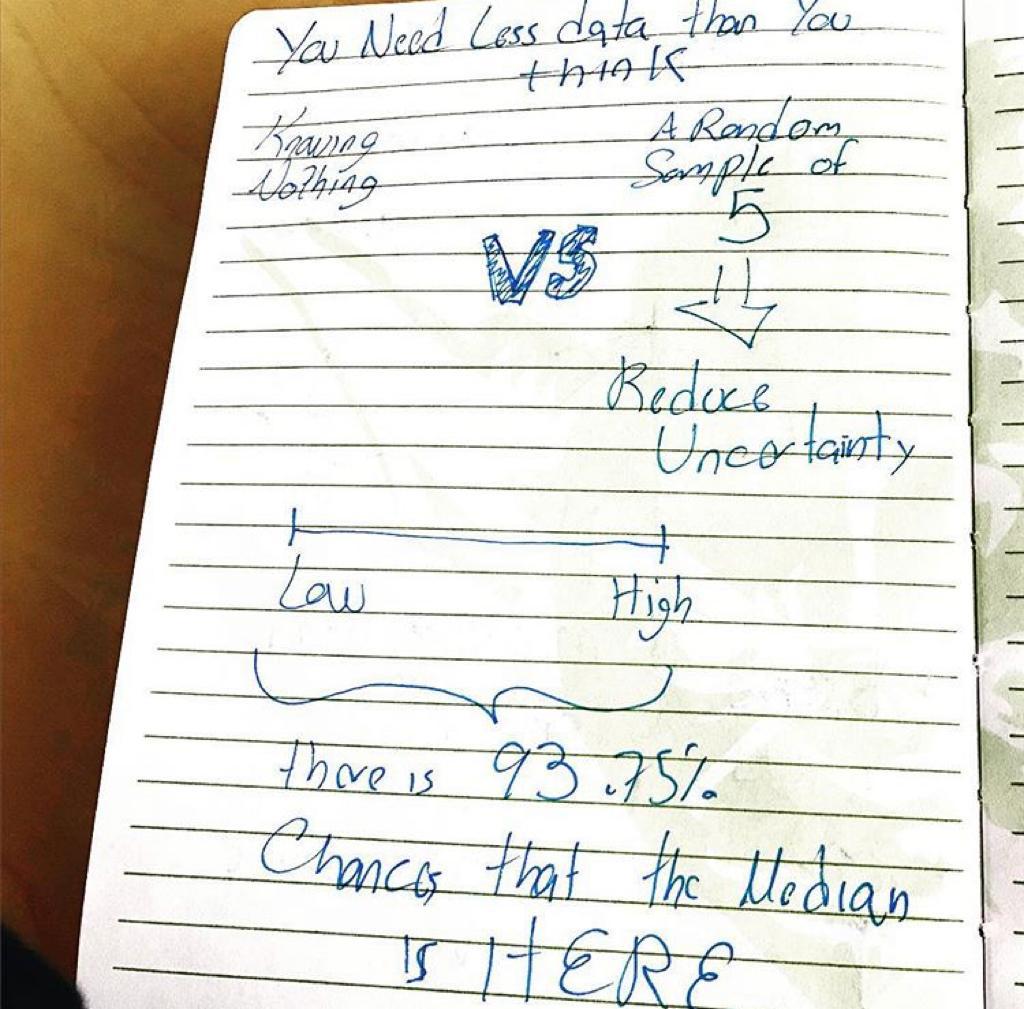 You Need Less data than You
think
Knowing
Nothing
A Random
Sample of
5
VS
Reduce
Uncertainty
Low
High
there is 93.75%.
Chances that the Median
is HERE